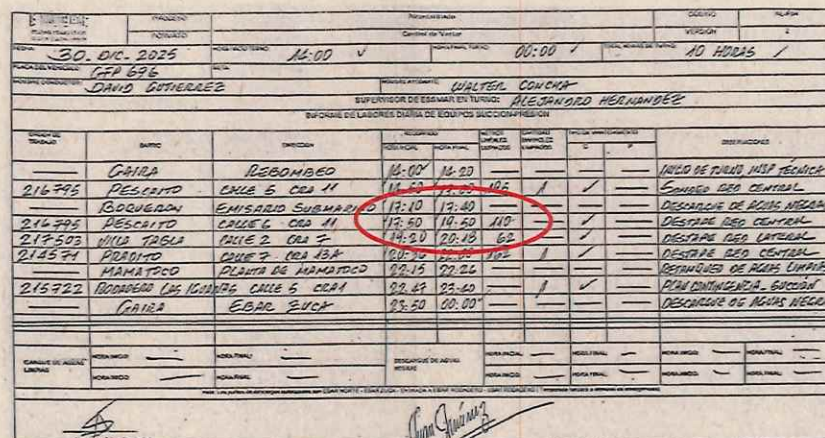 PROCESO
Control de Vactor
VERSIÓN 2
30. DIC. 2025 14:00 √ 00:00 √ 10 HORAS /
PLACA DEL VEHICULO: GFP 696
DAVID GUTIERREZ WALTER CONCHA
SUPERVISOR DE ESSMAR EN TURNO: ALEJANDRO HERNANDEZ
INFORME DE LABORES DIARIA DE EQUIPOS SUCCION-PRESION
ORDEN DE TRABAJO BARRIO DIRECCION HORA INICIAL HORA FINAL METROS LINEALES LIMPIADOS OBSERVACIONES
— GAIRA REBOMBEO 14:00 14:20 — — — — INICIO DE TURNO, INSP TÉCNICA
216795 PESCAITO CALLE 5 CRA 11 17:00 1 ✓ — SONDEO RED CENTRAL
— BOQUERON EMISARIO SUBMARINO 17:10 17:40 — — — — DESCARGUE DE AGUAS NEGRAS
216795 PESCAITO CALLE 6 CRA 11 17:50 19:50 110 — ✓ — DESTAPE RED CENTRAL
217503 VILLA TABLA CALLE 2 CRA 7 19:20 20:18 62 — ✓ — DESTAPE RED LATERAL
214571 PRADITO CALLE 7 - CRA 13A 20:36 22:00 162 1 ✓ — DESTAPE RED CENTRAL
— MAMATOCO PLANTA DE MAMATOCO 22:15 22:26 — — — — RETANQUEO DE AGUAS LIMPIAS
215722 RODADERO LAS IGUANAS CALLE 5 CRA 1 22:47 23:40 — 1 ✓ — PLAN CONTINGENCIA - SUCCIÓN
— GAIRA EBAR ZUCA 23:50 00:00 — — — — DESCARGUE DE AGUAS NEGRAS
CARGUE DE AGUAS LIMPIAS HORA INICIO: — HORA FINAL: — DESCARGUE DE AGUAS NEGRAS HORA INICIAL: — HORA FINAL: — HORA INICIO: — HORA FINAL: —
HORA INICIO: — HORA FINAL: — HORA INICIAL: — HORA FINAL: — HORA INICIO: — HORA FINAL: —
Juan Jiménez